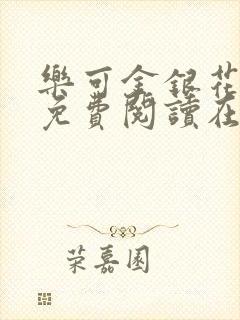 樂可金銀花
免費閱讀在
荣嘉園